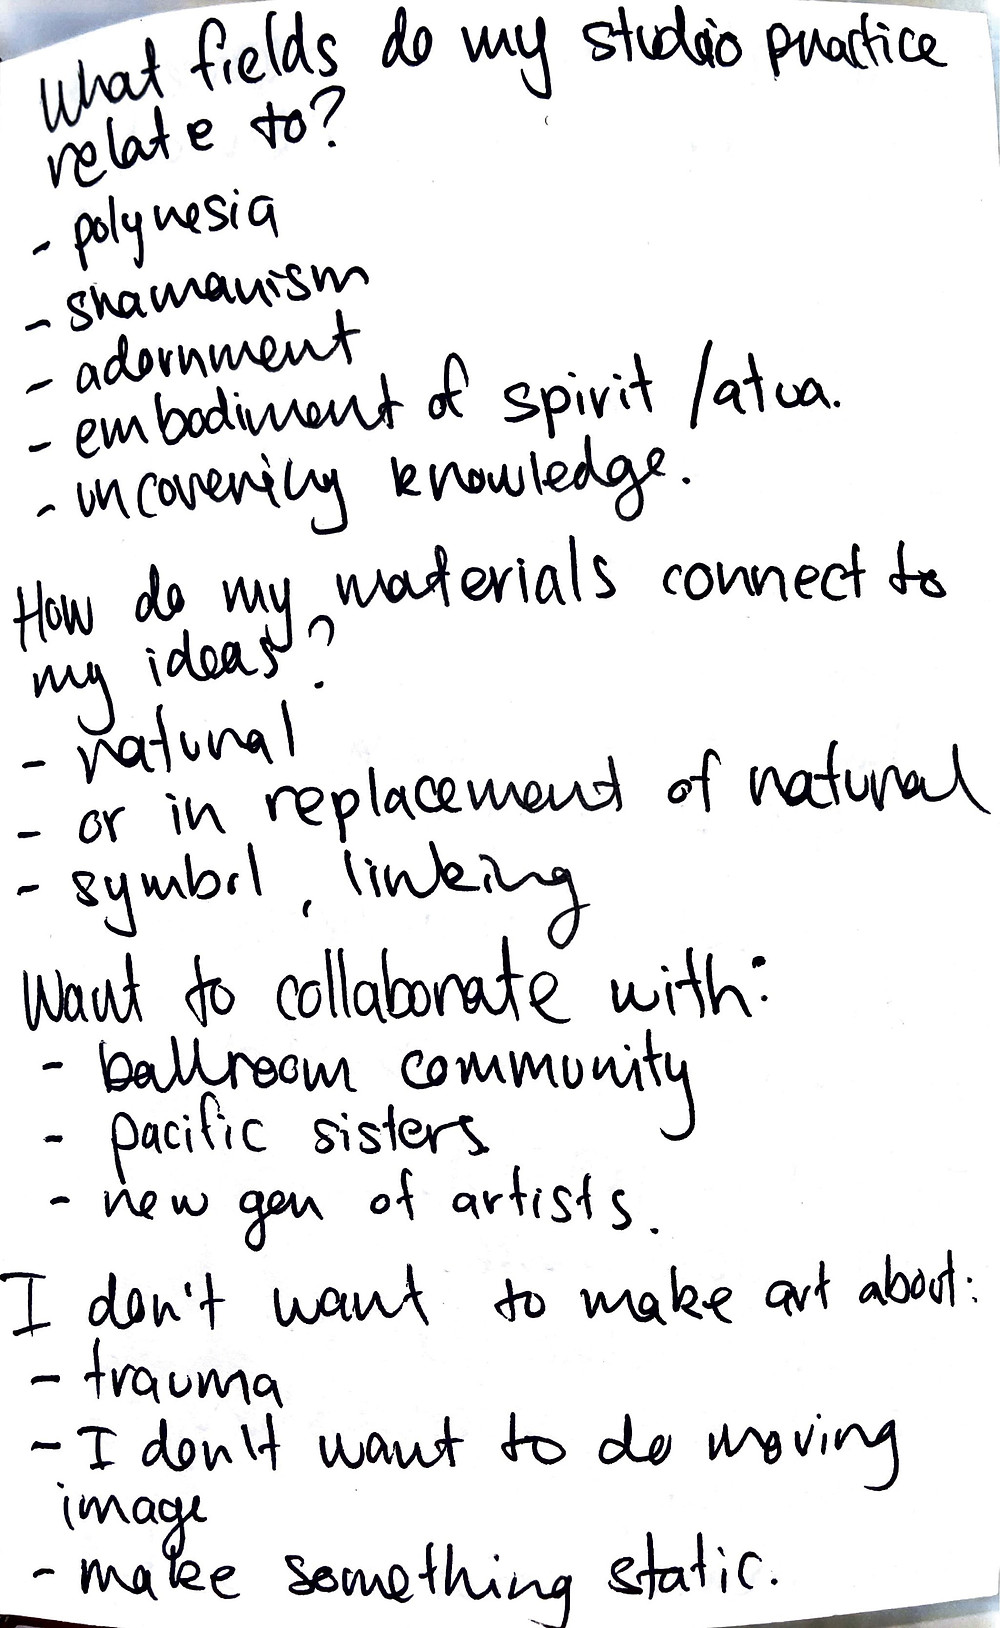 What fields do my studio practice
relate to?
- polynesia
- shamanism
- adornment
- embodiment of spirit /atua.
- uncovering knowledge.
How do my materials connect to
my ideas?
- natural
- or in replacement of natural
- symbol, linking
Want to collaborate with:
- ballroom community
- pacific sisters
- new gen of artists.
I don't want to make art about:
- trauma
- I don't want to do moving
image
- make something static.